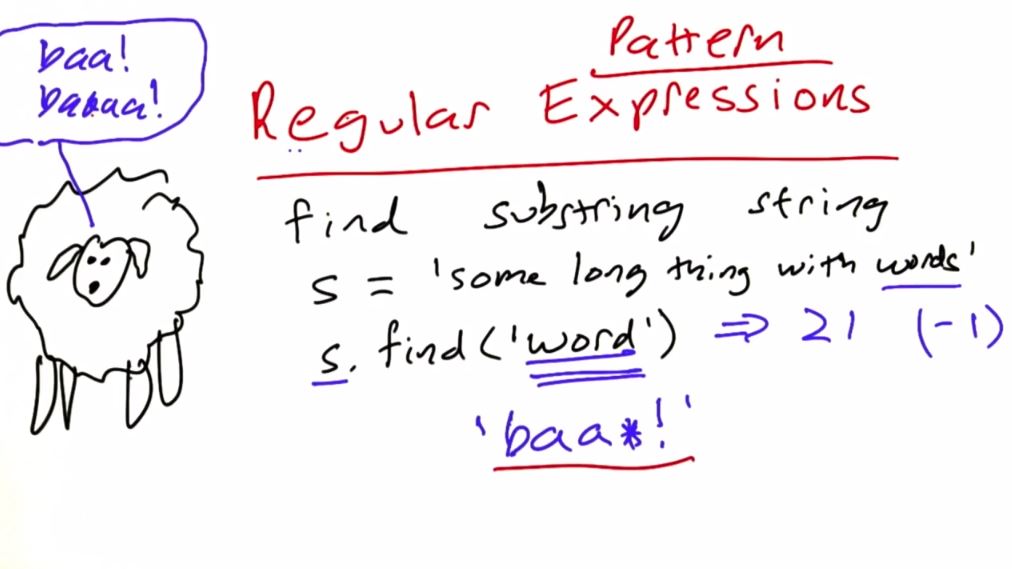 baa!
baaaa!
Pattern
Regular Expressions
find substring string
s = 'some long thing with words'
s.find('word') ⇒ 21 (-1)
'baa*!'